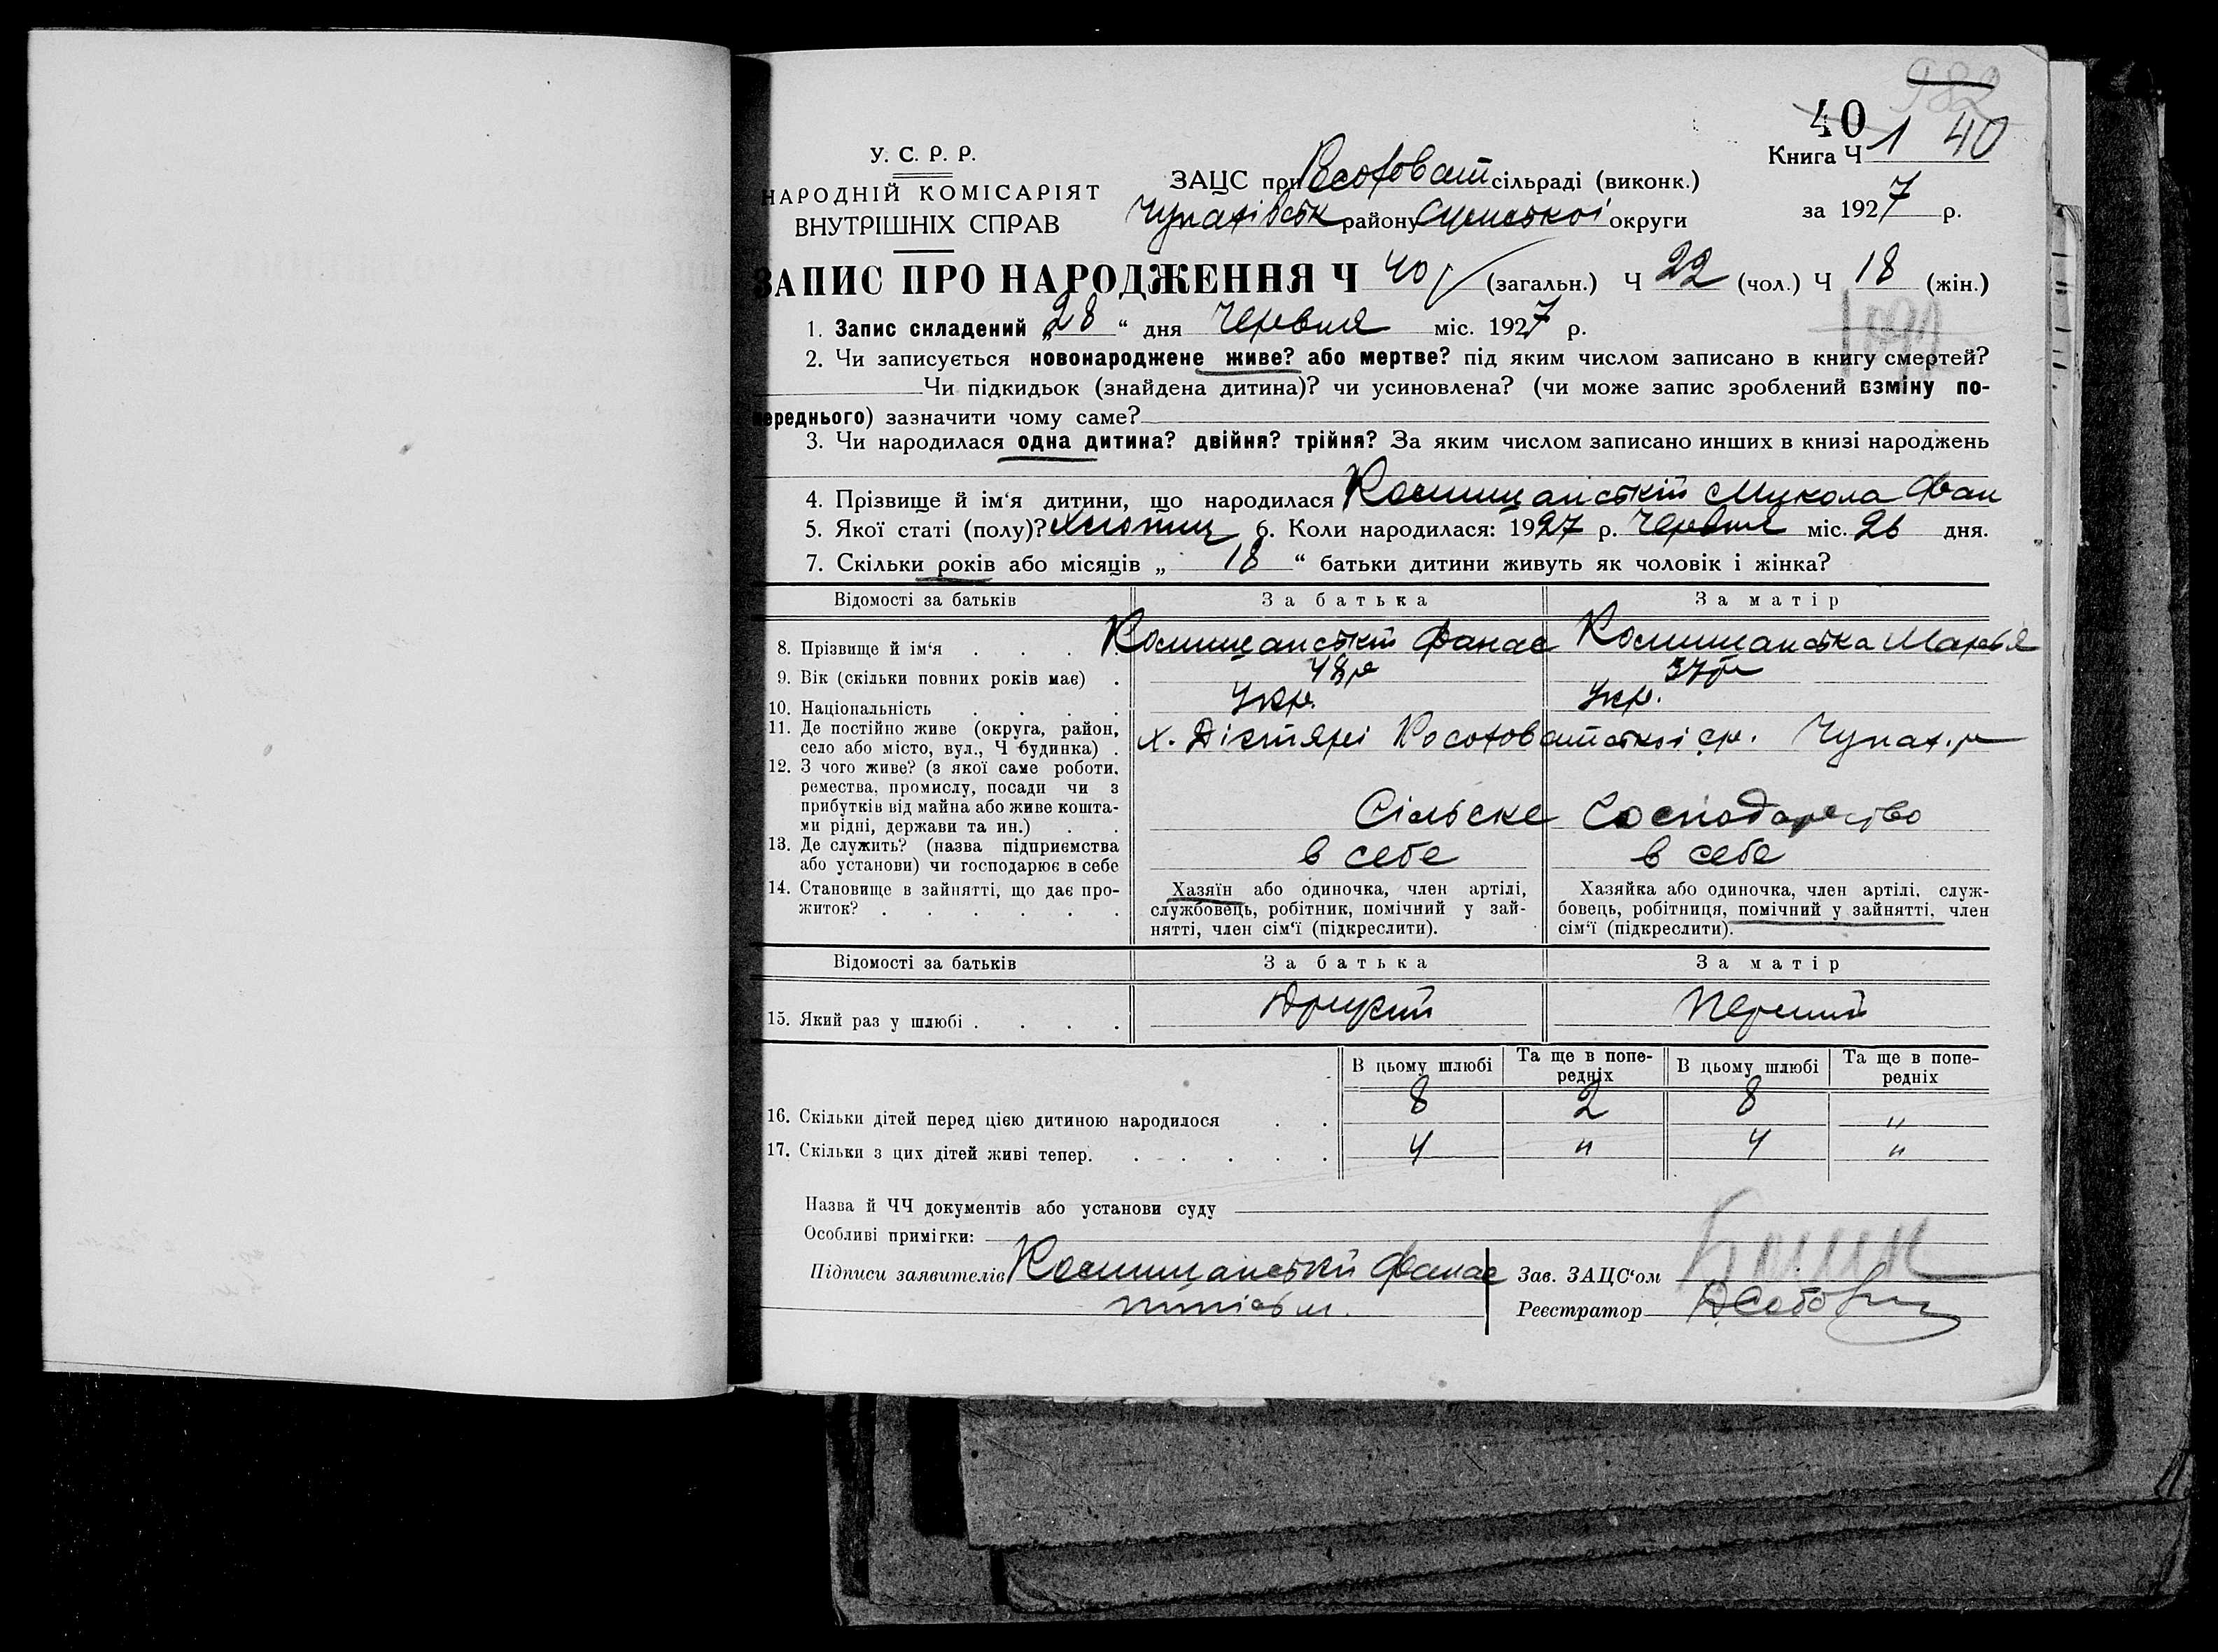 982
40
У. С. Р. Р.
Книга Ч 1 40
НАРОДНІЙ КОМІСАРІЯТ
ВНУТРІШНІХ СПРАВ
ЗАЦС при Косоват сільраді (виконк.)
Чупахівськ району Сумської округи
за 1927 р.
ЗАПИС ПРО НАРОДЖЕННЯ Ч 40 (загальн.) Ч 22 (чол.) Ч 18 (жін.)
1. Запис складений „28“ дня Червня міс. 1927 р.
2. Чи записується новонароджене живе? або мертве? під яким числом записано в книгу смертей?
Чи підкидьок (знайдена дитина)? чи усиновлена? (чи може запис зроблений взміну по-
переднього) зазначити чому саме?
3. Чи народилася одна дитина? двійня? трійня? За яким числом записано инших в книзі народжень
4. Прізвище й ім‘я дитини, що народилася Микола Фан
5. Якої статі (полу)? Хлопиц 6. Коли народилася: 1927 р. Червня міс. 26 дня.
7. Скільки років або місяців „ 18 “ батьки дитини живуть як чоловік і жінка?
Відомості за батьків За батька За матір
8. Прізвище й ім‘я . . . . Фанас Марія
9. Вік (скільки повних років має) . 48р 37р
10. Національність . . . . Укр. Укр.
11. Де постійно живе (округа, район,
село або місто, вул., Ч будинка) . х. Дігтярі Чупах. р
12. З чого живе? (з якої саме роботи,
ремества, промислу, посади чи з
прибутків від майна або живе кошта-
ми рідні, держави та ин.) . . Сільске Господарство
13. Де служить? (назва підприємства
або установи) чи господарює в себе в себе в себе
14. Становище в зайнятті, що дає про-
житок? . . . . . .
Хазяїн або одиночка, член артілі,
службовець, робітник, помічний у зай-
нятті, член сім‘ї (підкреслити).
Хазяйка або одиночка, член артілі, служ-
бовець, робітниця, помічний у зайнятті, член
сім‘ї (підкреслити).
Відомості за батьків За батька За матір
15. Який раз у шлюбі . . . . Другий Перший
В цьому шлюбі Та ще в попе-
редніх В цьому шлюбі Та ще в попе-
редніх
16. Скільки дітей перед цією дитиною народилося . . 8 2 8 „
17. Скільки з цих дітей живі тепер. . . . . . 4 „ 4 „
Назва й ЧЧ документів або установи суду
Особливі примігки:
Підписи заявителів Фанас
Зав. ЗАЦС‘ом
Реєстратор